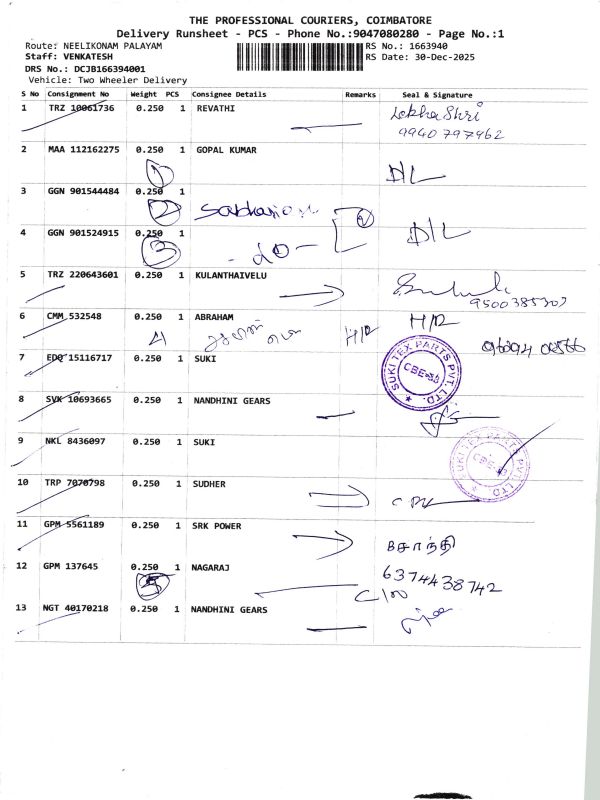 THE PROFESSIONAL COURIERS, COIMBATORE
Delivery Runsheet - PCS - Phone No.:9047080280 - Page No.:1
Route: NEELIKONAM PALAYAM RS No.: 1663940
Staff: VENKATESH RS Date: 30-Dec-2025
DRS No.: DCJB166394001
Vehicle: Two Wheeler Delivery
S No Consignment No Weight PCS Consignee Details Remarks Seal & Signature
1 TRZ 10061736 0.250 1 REVATHI LekhaShri
9940797462
2 MAA 112162275 0.250 1 GOPAL KUMAR
1 D/L
3 GGN 901544484 0.250 1
2
4 GGN 901524915 0.250 1 D/L
3 - do -
5 TRZ 220643601 0.250 1 KULANTHAIVELU
9500385307
6 CMM 532548 0.250 1 ABRAHAM H/R
4 H/R
7 EDQ 15116717 0.250 1 SUKI SUKI TEX PARTS PVT. LTD. CBE-35
8 SVK 10693665 0.250 1 NANDHINI GEARS
9 NKL 8436097 0.250 1 SUKI SUKI TEX PARTS PVT. LTD.
10 TRP 7070798 0.250 1 SUDHER
11 GPM 5561189 0.250 1 SRK POWER
சாந்தி
12 GPM 137645 0.250 1 NAGARAJ 6374438742
5
13 NGT 40170218 0.250 1 NANDHINI GEARS